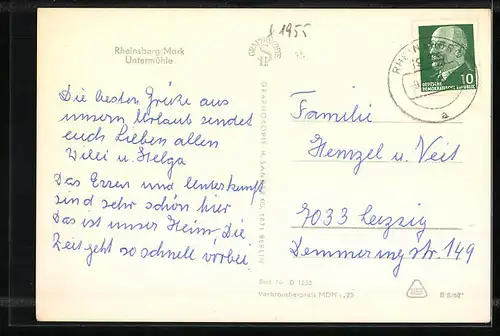 f 1955
Rheinsberg/Mark
Untermühle
GRAPHOKOPIE
RHEINSBERG
a
10
DEUTSCHE
DEMOKRATISCHE REPUBLIK
Die besten Grüße aus
unserm Urlaub sendet
euch Lieben allen
Willi u. Helga
Das Essen und Unterkunft
sind sehr schön hier
Das ist unser Heim, Die
Zeit geht so schnell vorbei
GRAPHOKOPIE H. SANDER KG, BERLIN
Familie
Hempel u. Veit
7033 Leipzig
Demmeringstr 149
Best. Nr. D 1232
Verbraucherpreis MDN -,25